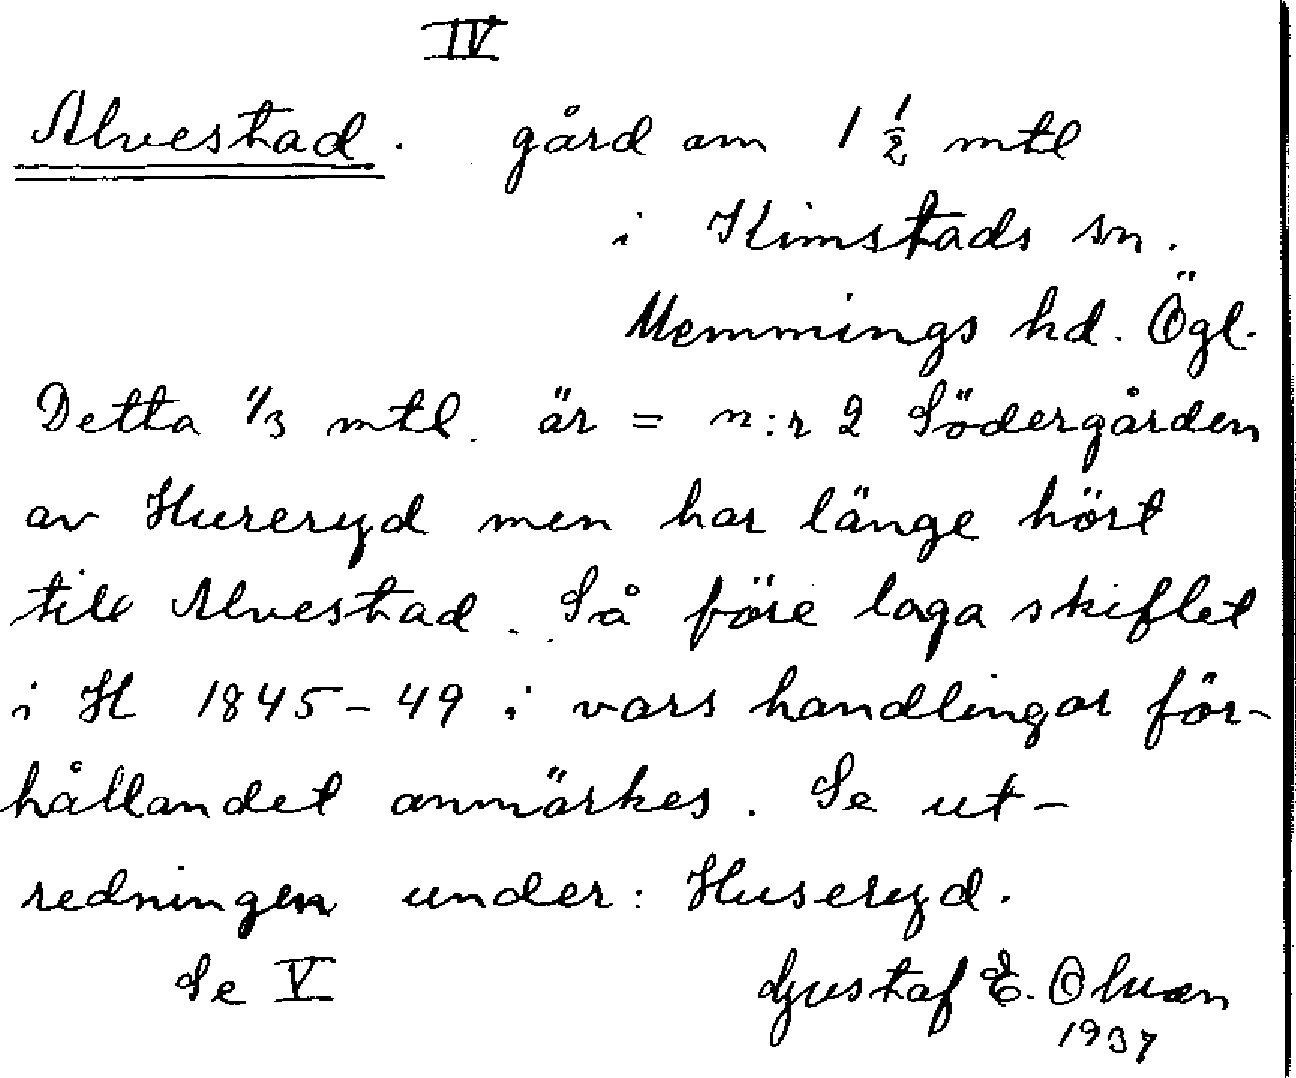 IV
Alvestad. gård om 1 1/2 mtl
i Kimstads sn.
Memmings hd. Ögl.
Detta 1/3 mtl. är = n:r 2 Södergården
av Hureryd men har länge hört
till Alvestad. Så före laga skiftet
i H 1845-49 i vars handlingar för-
hållandet anmärkes. Se ut-
redningen under: Huseryd.
Se V Gustaf E.
1937